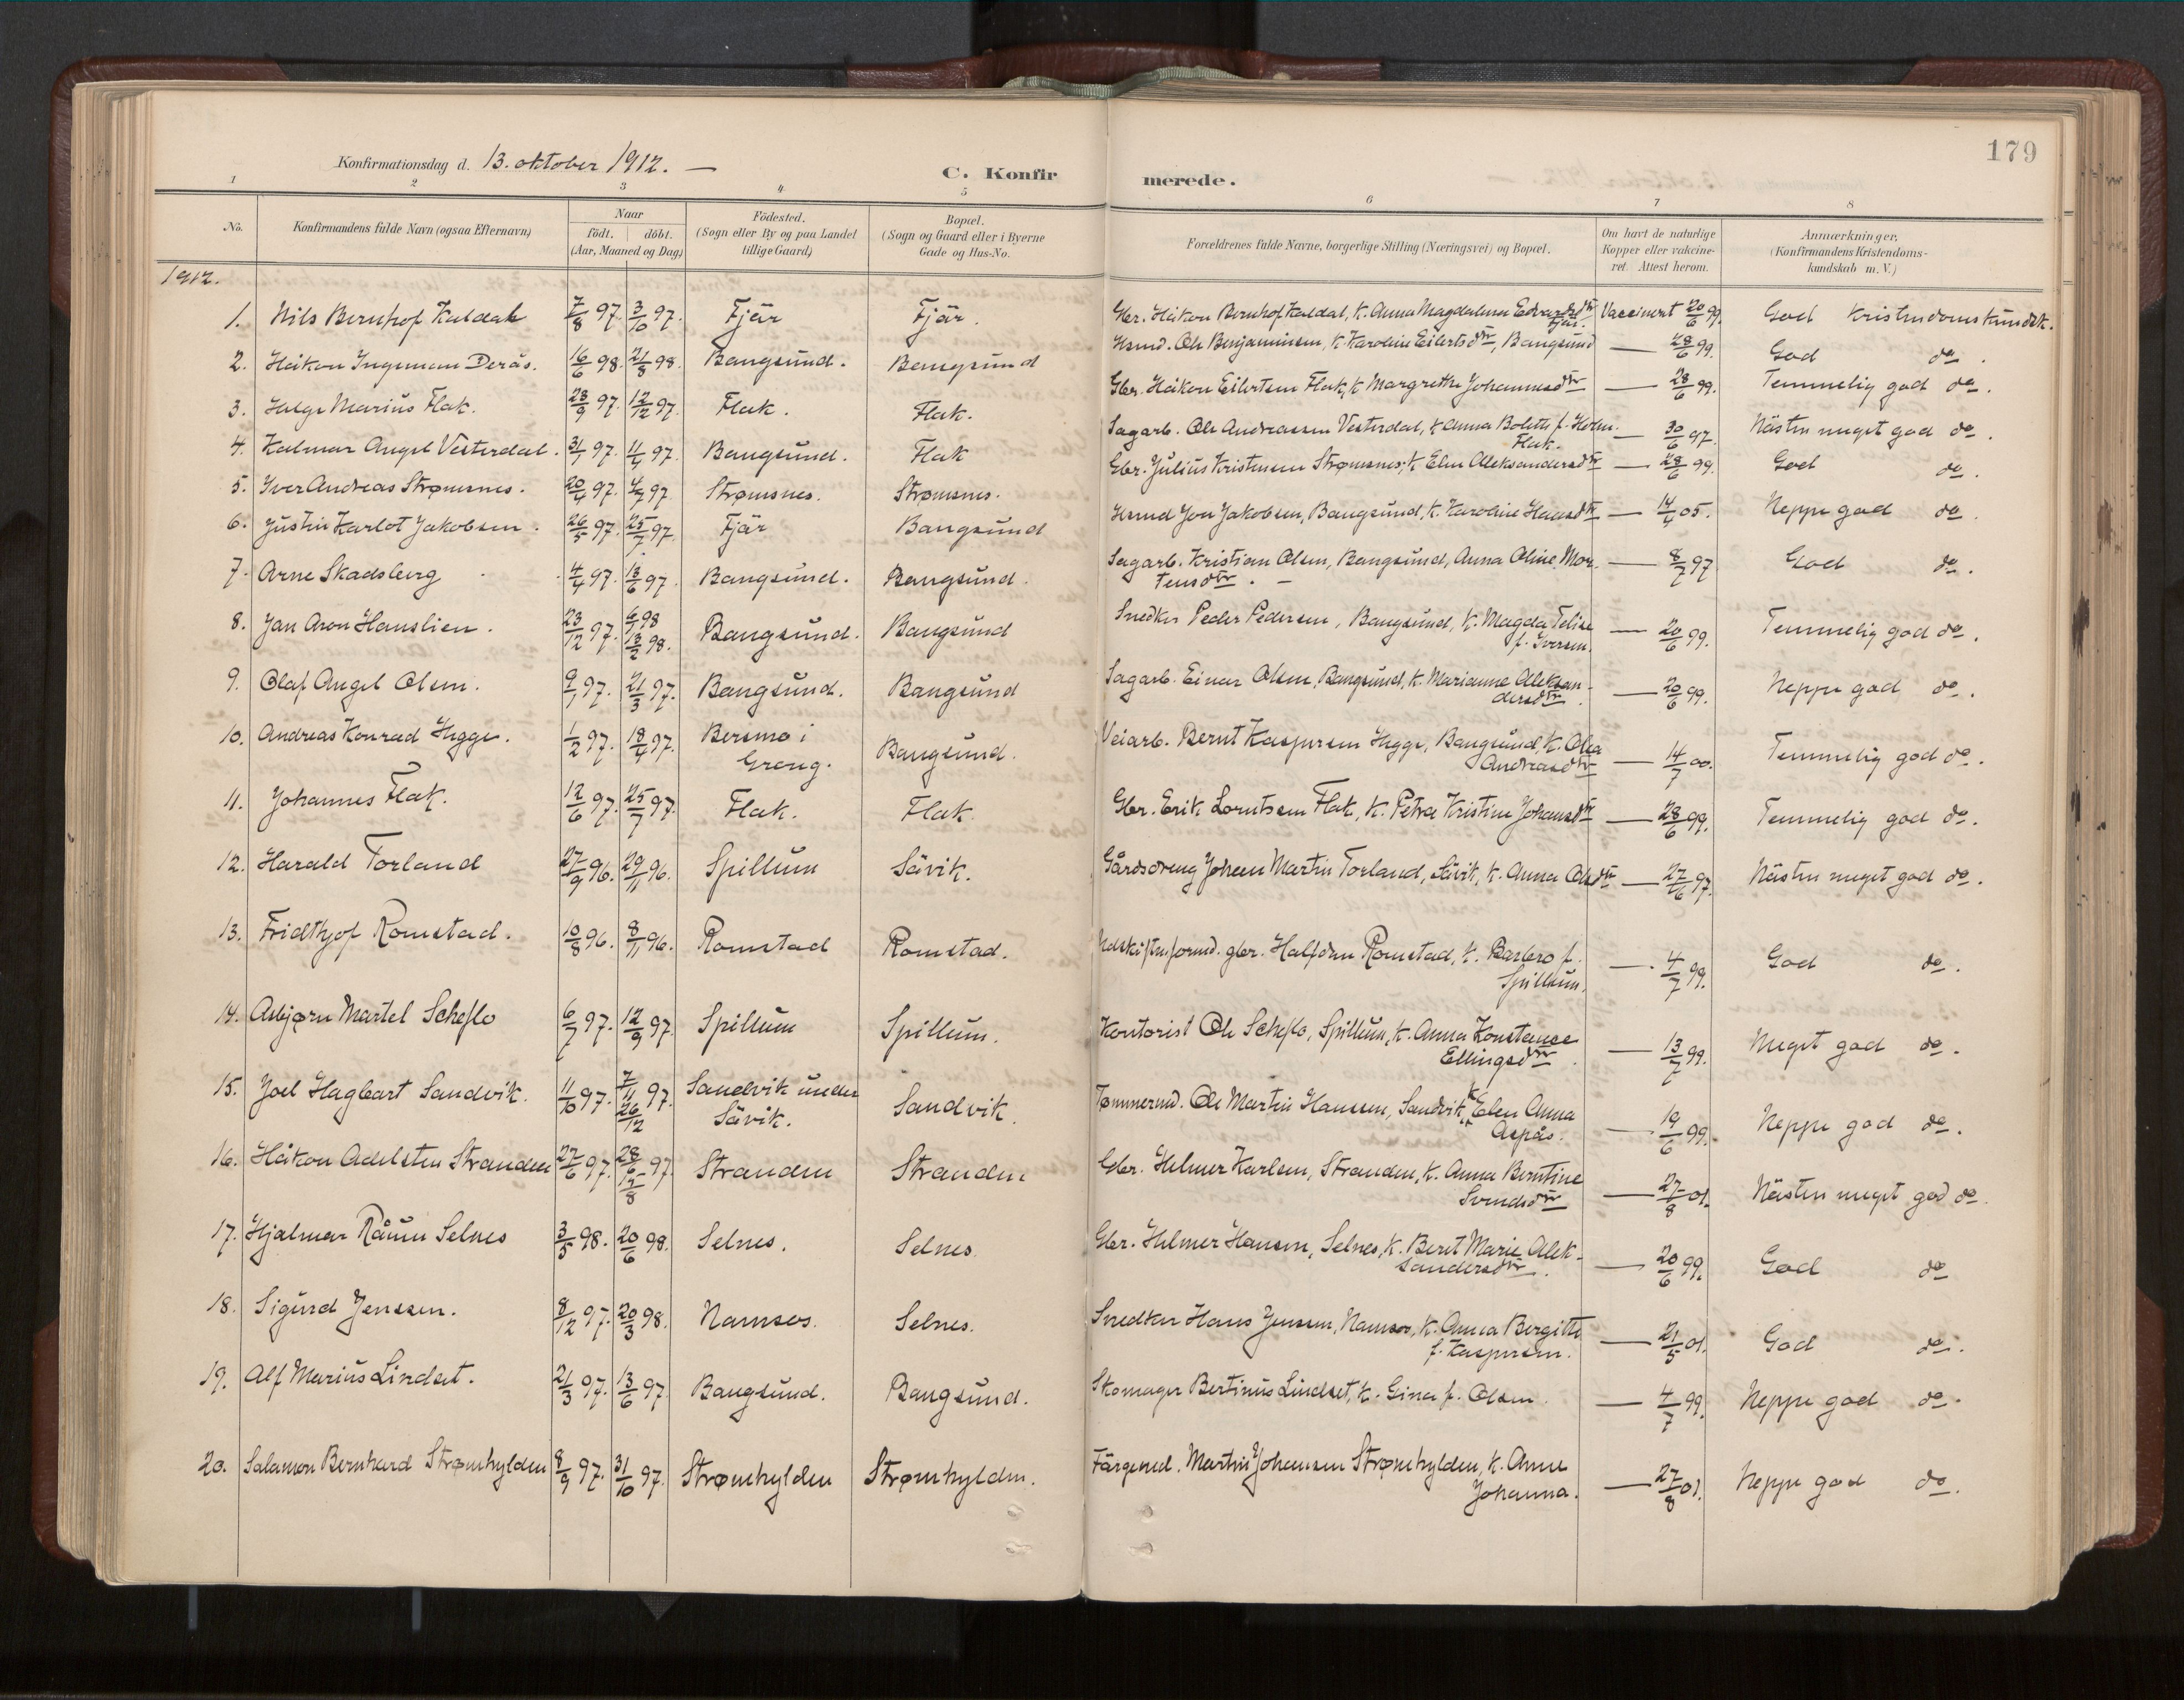 179
Konfirmationsdag d. 13. oktober 1912. —
C. Konfirmerede.
1 2 3 4 5 6 7 8
No. Konfirmandens fulde Navn (ogsaa Efternavn) Naar födt. döbt. (Aar, Maaned og Dag) Födested. (Sogn eller By og paa Landet tillige Gaard) Bopæl. (Sogn og Gaard eller i Byerne Gade og Hus-No. Forældrenes fulde Navne, borgerlige Stilling (Næringsvei) og Bopæl. Om havt de naturlige Kopper eller vakcineret. Attest herom. Anmærkninger, (Konfirmandens Kristendomskundskab m. V.)
1912.
1. Nils Bernhof Kaldal 7/8 97. 3/10 97. Fjär Fjär. Gbr. Håkon Bernhof Kaldal, K. Anna Magdalena Edvardsdtr Fjär. Vaccinert 20/6 99. God Kristendomskundsk.
2. Håkon Ingeman Derås. 16/6 98. 21/8 98. Bangsund. Bangsund Hsmd. Ole Benjaminsen, K. Karoline Eilertsdtr, Bangsund — 28/6 99. God do.
3. Helge Marius Flak. 28/9 97. 12/12 97. Flak. Flak. Gbr. Håkon Eilertsen Flak, K. Margrethe Johannesdtr — 28/6 99. Temmelig god do.
4. Kalmar Angel Vesterdal. 31/1 97. 11/4 97. Bangsund. Flak Sagarb. Ole Andreassen Vesterdal, K. Anna Bolette f. Holm. Flak. — 30/6 97. Nästen meget god do.
5. Iver Andreas Strømsnes. 20/4 97. 4/7 97. Strømsnes. Strømsnes. Gbr. Julius Kristensen Strømsnes, K. Elen Aleksandersdtr — 28/6 99. God do.
6. Justin Karlot Jakobsen. 26/5 97. 25/7 97. Fjär Bangsund Hsmd Jon Jakobsen, Bangsund, K. Karoline Hansdtr — 14/4 05. Neppe god do.
7. Arne Skadsberg 4/4 97. 13/6 97. Bangsund. Bangsund. Sagarb. Kristian Olsen, Bangsund, Anna Oline Mortensdtr. — — 8/7 97 God do.
8. Jan Aron Hanslien. 23/12 97. 6/1 98 13/2 98. Bangsund. Bangsund Snedker Peder Pedersen, Bangsund, K. Magda Telise f. Iversen. — 20/6 99. Temmelig god do.
9. Olaf Angel Olsen. 9/1 97. 21/3 97. Bangsund. Bangsund Sagarb. Einar Olsen, Bangsund, K. Marianne Aleksandersdtr. — 20/6 99. Neppe god do.
10. Andreas Konrad Hegge. 1/2 97. 18/4 97. Bersmo i Grong. Bangsund. Veiarb. Bernt Kaspersen Hegge, Bangsund, K. Olea Andreasdtr — 14/7 00. Temmelig god do.
11. Johannes Flak. 12/6 97. 25/7 97. Flak. Flak. Gbr. Erik Lorntsen Flak, K. Petra Kristine Johansdtr — 28/6 99. Temmelig god do.
12. Harald Torland 27/9 96. 29/11 96. Spillum Sävik. Gårdsdreng Johan Martin Torland, Sävik, K. Anna Olsdtr — 27/6 97. Nästen meget god do.
13. Fridthjof Romstad. 10/8 96. 8/11 96. Romstad Romstad. gbr. Halfdan Romstad, K. Barbro f. Spillum. — 4/7 99. God do.
14. Asbjørn Martel Scheflo 6/7 97. 12/9 97. Spillum Spillum. Kontorist Ole Scheflo, Spillum, K. Anna Konstanse Ellingsdtr. — 13/7 99. Meget god do.
15. Joel Hagbart Sandvik. 11/10 97. 7/11 97. 26/12 Sandvik under Sävik. Sandvik. Tømmermd. Ole Martin Hanssen, Sandvik, K. Elen Anna Aspås. — 19/6 99. Neppe god do.
16. Håkon Adelsten Stranden 27/6 97. 28/6 97. 15/8 Stranden Stranden Gbr. Helmer Karlsen, Stranden, K. Anna Berntine Svendsdtr — 27/8 01. Nästen meget god do.
17. Hjalmar Råum Selnes 3/5 98. 20/6 98. Selnes. Selnes. Gbr. Helmer Hansen, Selnes, K. Beret Marie Aleksandersdtr. — 20/6 99. God do
18. Sigurd Jenssen. 8/12 97. 20/3 98. Namsos. Selnes. Snedker Hans Jenssen, Namsos, K. Anna Bergitte f. Kaspersen. — 21/5 01. God do.
19. Alf Marius Lindset. 21/3 97. 13/6 97. Bangsund. Bangsund. Skomager Bertinus Lindset, K. Gina f. Olsen. — 4/7 99. Neppe god do.
20. Salamon Bernhard Strømhylden 8/9 97. 31/10 97. Strømhylden Strømhylden. Färgemd. Martin Johansen Strømhylden, K. Anne Johanna. — 27/8 01. Neppe god do.